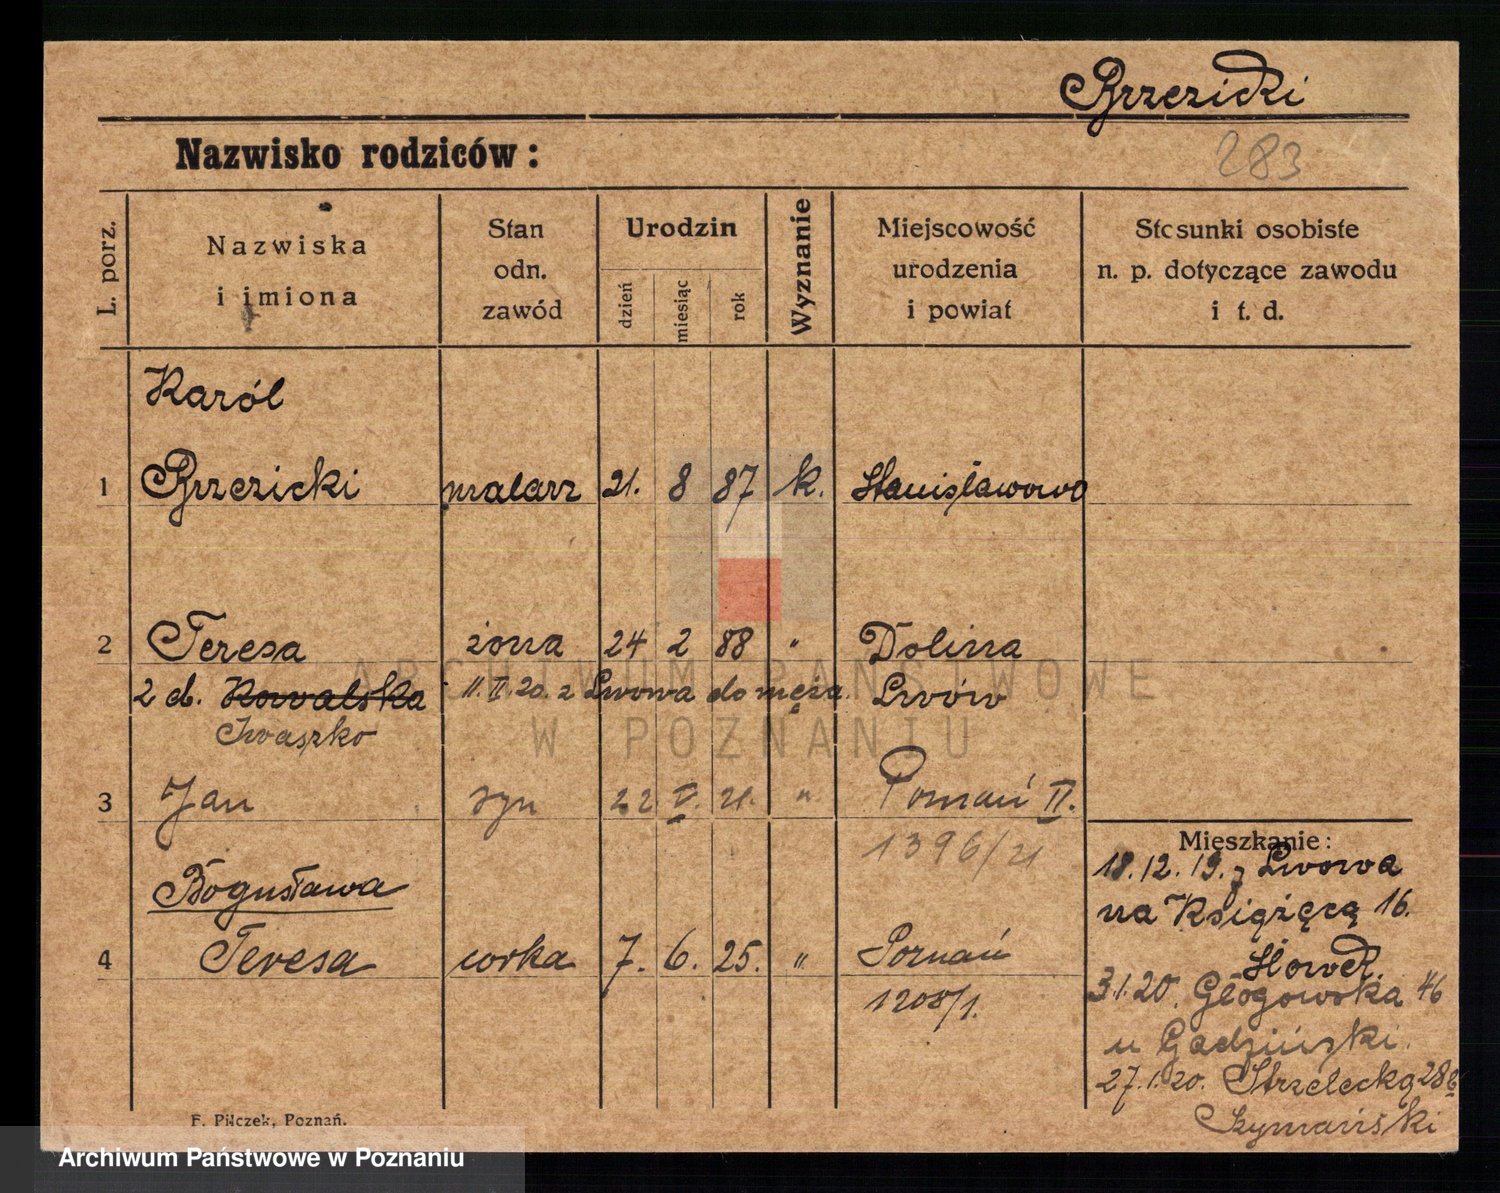 Brzezicki
Nazwisko rodziców:
283
L. porz.
Nazwiska
i imiona
Stan
odn.
zawód
Urodzin
dzień
miesiąc
rok
Wyznanie
Miejscowość
urodzenia
i powiat
Stosunki osobiste
n. p. dotyczące zawodu
i t. d.
Karól
1 Brzezicki malarz 21. 8 87 k. Stanisławowo
2 Teresa żona 24 2 88 " Dolina
2 d. Kowalska 11. II. 20. z Lwowa do męża. Lwów
Iwaszko
3 Jan syn 22 V. 21. " Poznań II.
1396/21
Bogusława
4 Teresa corka 7. 6. 25. " Poznań
1208/1.
Mieszkanie:
18.12.19. z Lwowa
na Książęcą 16.
3.1.20. Głogowska 46
u Gadziński.
27.1.20. Strzelecką 28
Szymański
F. Pilczek, Poznań.
ARCHIWUM PAŃSTWOWE
W POZNANIU
Archiwum Państwowe w Poznaniu